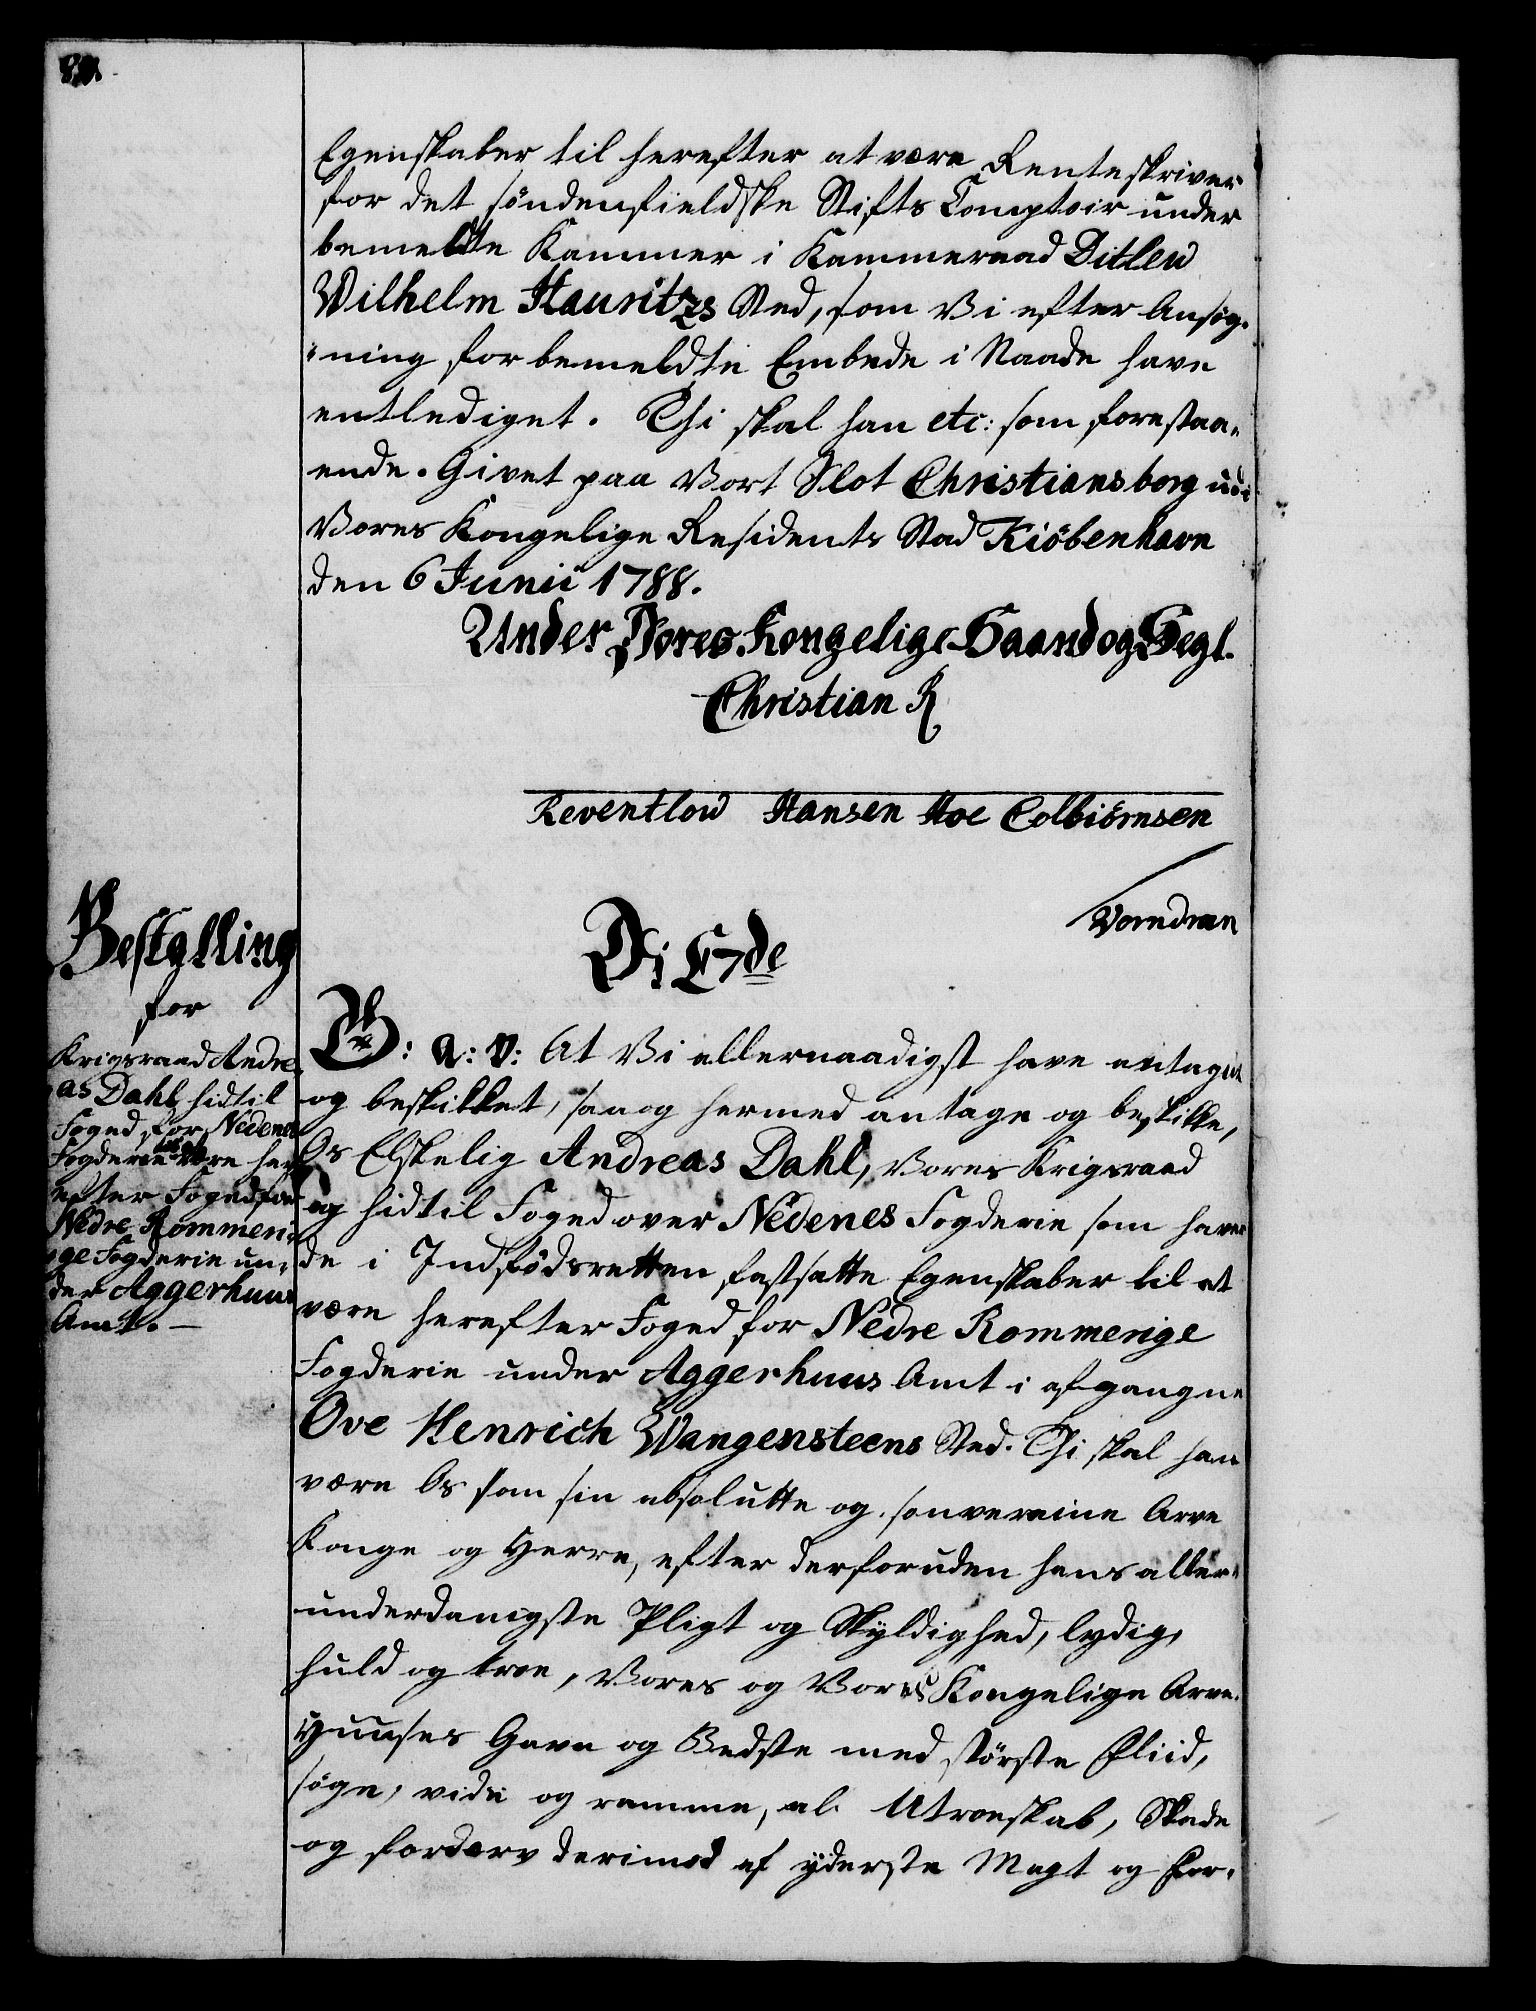 Egenskaber til herefter at være Renteskriver
for det söndenfieldske Stifts Comptoir under
bemeldte Kammer i Kammeraad Ditlew
Wilhelm Hauritzs Sted, som Vi efter Ansög-
ning for bemeldte Embede i Naade have
entlediget. Thi skal han etc: som forestaa-
ende. Givet paa Vort Slot Christiansborg udi
Vores Kongelige Residents Stad Kiöbenhavn
den 6 Junii 1788.
Under Vores Kongelige Haand og Segl.
Christian R
Reventlow Hansen Hoe Colbiörnsen
Vorndran
Bestalling
for
Krigsraad Andre-
as Dahl hidtil
Foged for Nedenes
Fogderie at være her-
efter Foged for
Nedre Rommeri-
ge Fogderie un-
der Aggerhuus
Amt. —
Vi C 7de
G: A: V: At Vi allernaadigst have antaget
og beskikket, saa og hermed antage og beskikke,
Os Elskelig Andreas Dahl, Vores Krigsraad
og hidtil Foged over Nedenes Fogderie som haver
de i Indfödsretten fastsatte Egenskaber til at
være herefter Foged for Nedre Rommerige
Fogderie under Aggerhuus Amt i afgangne
Ove Henrich Wangensteens Sted. Thi skal han
være Os som sin absolutte og souveraine Arve
Konge og Herre, efter derforuden hans aller-
underdanigste Pligt og Skyldighed, lydig,
huld og troe, Vores og Vores Kongelige Arve-
Huuses Gavn og Bedste med störste Fliid,
söge, vide og ramme, al Utroeskab, Skade
og fordærv derimod af yderste Magt og For-